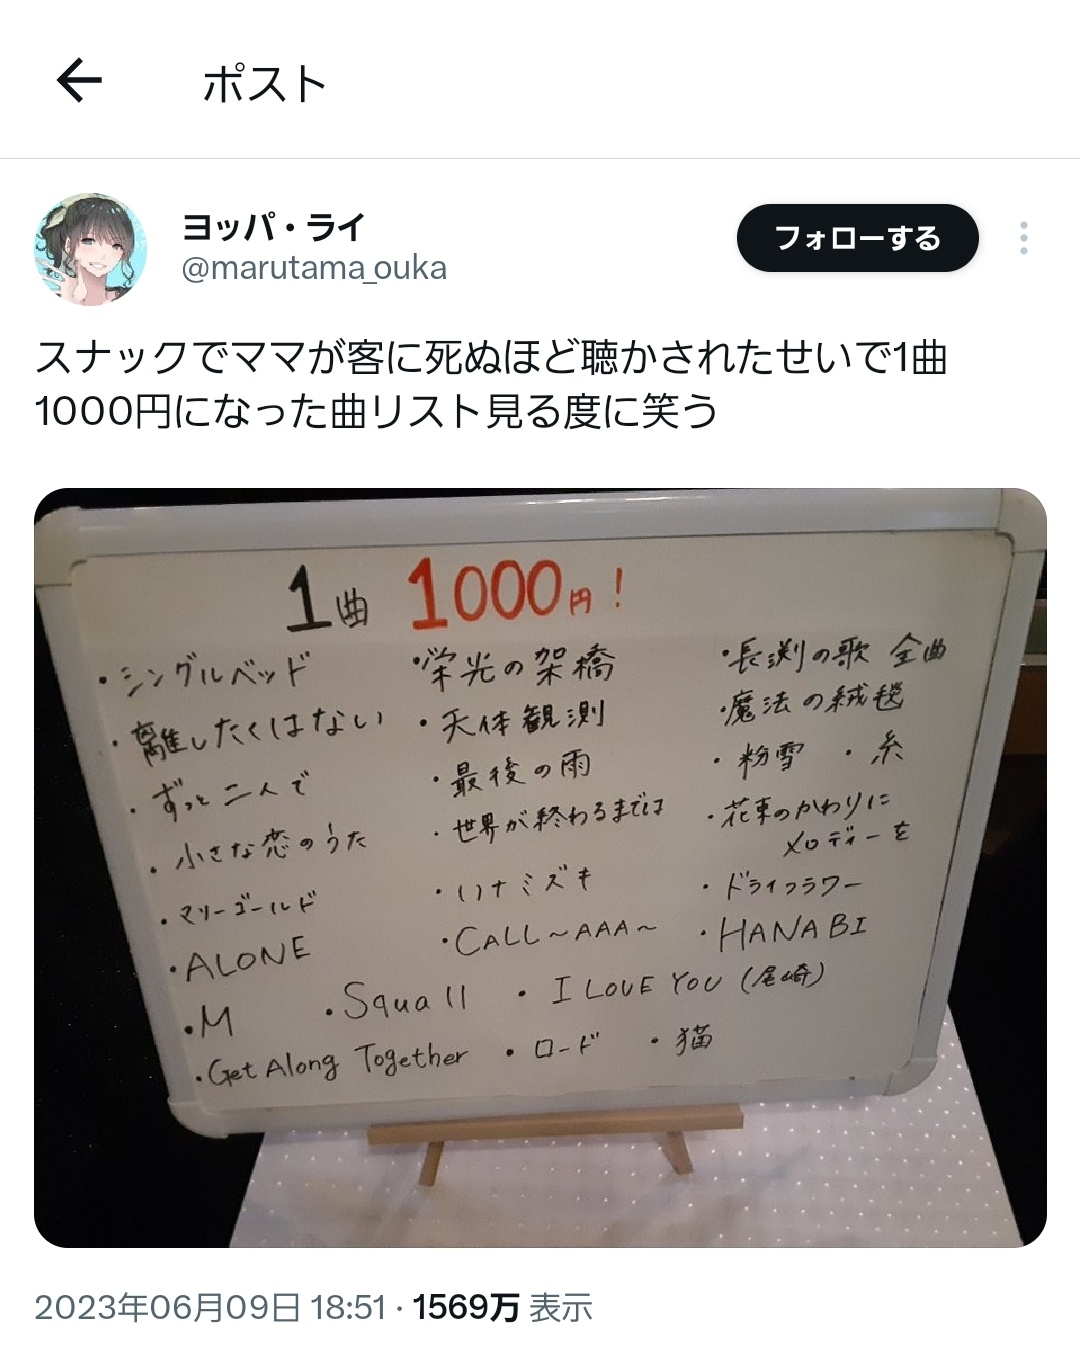 ポスト
ヨッパ・ライ
@marutama_ouka
フォローする
スナックでママが客に死ぬほど聴かされたせいで1曲
1000円になった曲リスト見る度に笑う
1曲 1000円!
・シングルベッド
・離したくはない
・ずっと二人で
・小さな恋のうた
・マリーゴールド
・ALONE
・栄光の架橋
・天体観測
・最後の雨
・世界が終わるまでは
・ハナミズキ
・CALL~AAA~
・長渕の歌 全曲
・魔法の絨毯
・粉雪 ・糸
・花束のかわりに
メロディーを
・ドライフラワー
・HANABI
・M ・Squall ・I LOVE YOU (尾崎)
・Get Along Together ・ロード ・猫
2023年06月09日 18:51・1569万 表示